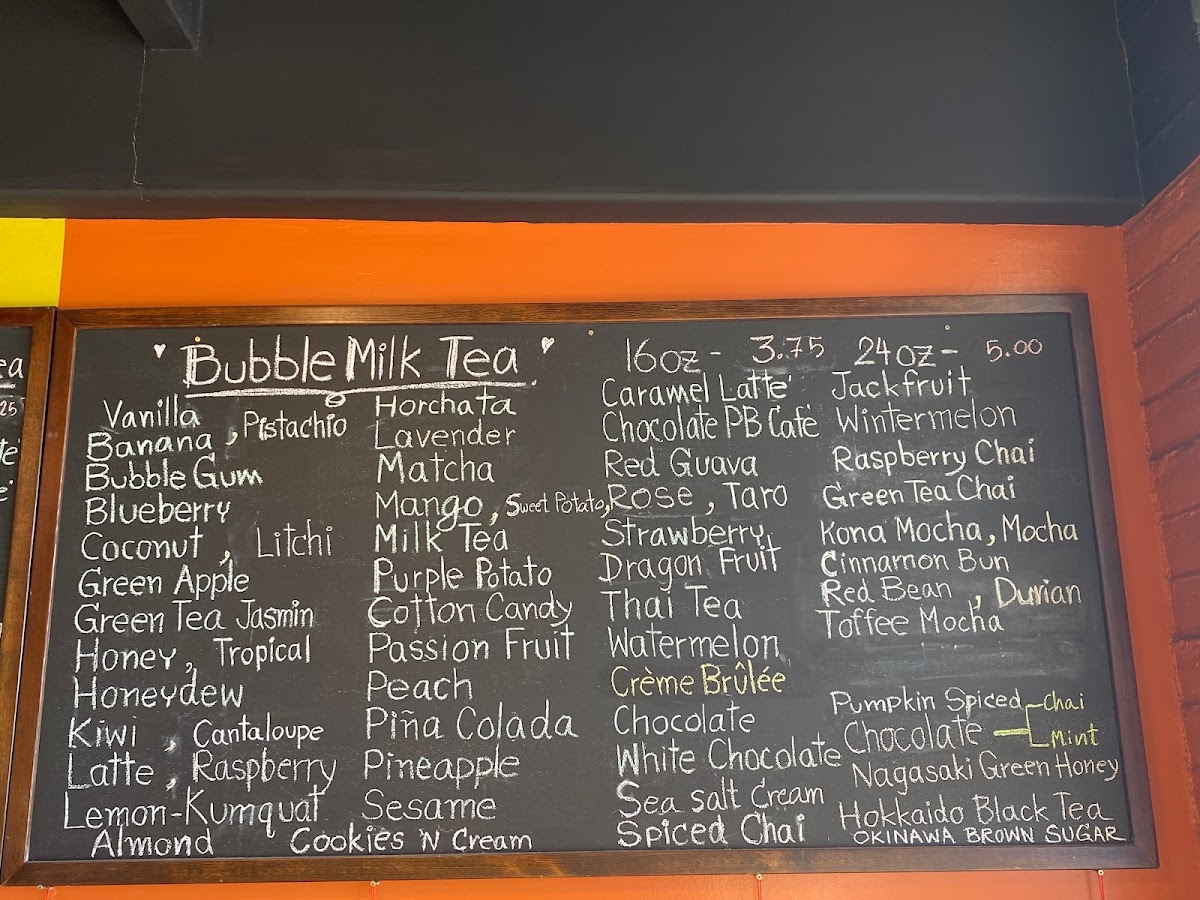 ea
25
Bubble Milk Tea
16oz - 3.75 24oz - 5.00
Vanilla
Banana , Pistachio
Bubble Gum
Blueberry
Coconut , Litchi
Green Apple
Green Tea Jasmin
Honey, Tropical
Honeydew
Kiwi , Cantaloupe
Latte , Raspberry
Lemon-Kumquat
Almond Cookies 'N Cream
Horchata
Lavender
Matcha
Mango, Sweet Potato,
Milk Tea
Purple Potato
Cotton Candy
Passion Fruit
Peach
Piña Colada
Pineapple
Sesame
Caramel Latte'
Chocolate PB Café
Red Guava
Rose , Taro
Strawberry
Dragon Fruit
Thai Tea
Watermelon
Crème Brûlée
Chocolate
White Chocolate
Sea salt Cream
Spiced Chai
Jackfruit
Wintermelon
Raspberry Chai
Green Tea Chai
Kona Mocha, Mocha
Cinnamon Bun
Red Bean , Durian
Toffee Mocha
Pumpkin Spiced Chai
Chocolate Mint
Nagasaki Green Honey
Hokkaido Black Tea
OKINAWA BROWN SUGAR